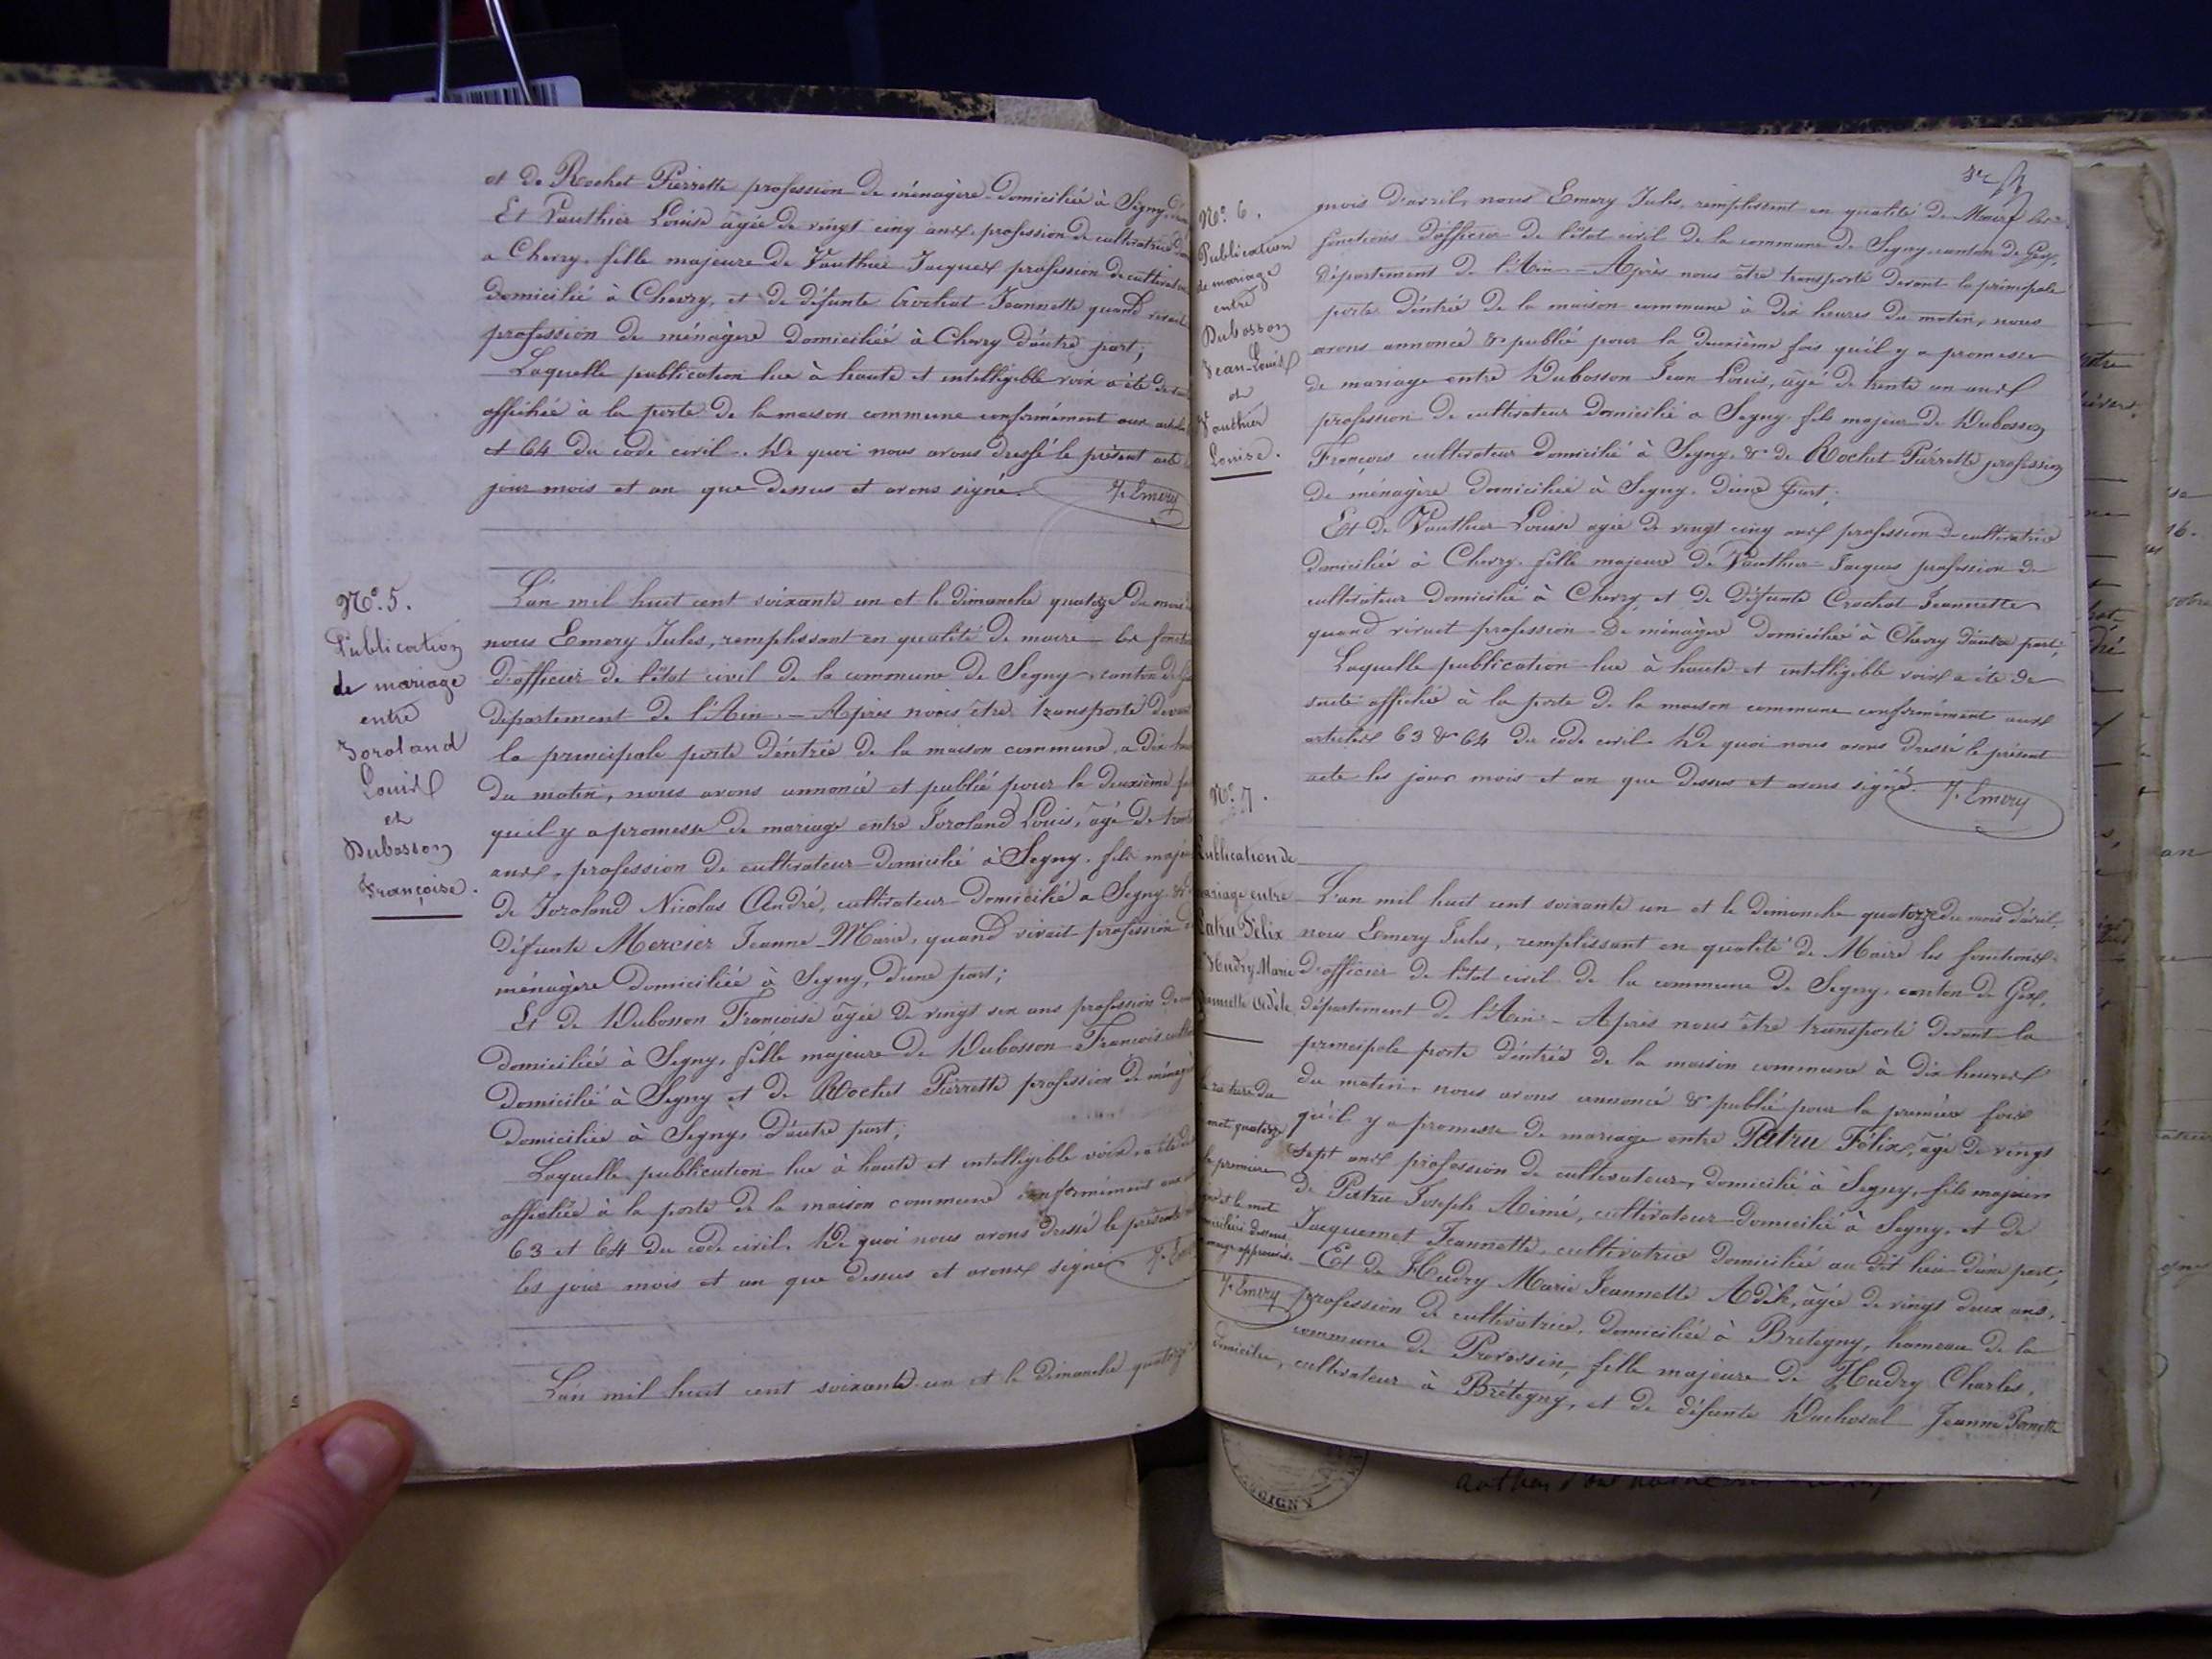 et de Rochet Pierrette profession de ménagère domiciliée à Segny
Et Vauthier Louise âgée de vingt cinq ans profession de cultivatrice
a Chevry, fille majeure de Vauthier Jacques profession de cultivateur
domicilié à Chevry, et de défunte Crochat Jeannette quand vivait
profession de ménagère domiciliée à Chevry d'autre part;
Laquelle publication lue à haute et intelligible voix a été de suite
affichée à la porte de la maison commune conformément aux articles
et 64 du code civil. De quoi nous avons dressé le présent acte
jour mois et an que dessus et avons signé. J. Emery
No. 5.
Publication
de mariage
entre
Joroland
Louis
et
Dubosson
Françoise.
L'an mil huit cent soixante un et le dimanche quatorze du mois
nous Emery Jules, remplissant en qualité de maire les
d'officier de l'état civil de la commune de Segny, canton de
département de l'Ain. - Après nous être transporté devant
la principale porte d'entrée de la maison commune, a dix
du matin, nous avons annoncé et publié pour la deuxième
qu'il y a promesse de mariage entre Joroland Louis, âgé de
ans, profession de cultivateur domicilié à Segny, fils
de Joroland Nicolas André, cultivateur domicilié a Segny &
défunte Mercier Jeanne Marie, quand vivait profession
ménagère domiciliée à Segny, d'une part;
Et de Dubosson Françoise âgée de vingt six ans profession de
domiciliée à Segny, fille majeure de Dubosson François
domicilié à Segny et de Rochet Pierrette profession de
domiciliée à Segny, d'autre part;
Laquelle publication lue à haute et intelligible voix, a été
affichée à la porte de la maison commune conformément aux
63 et 64 du code civil. De quoi nous avons dressé le présent
les jour mois et an que dessus et avons signé J. Em
L'an mil huit cent soixante un et le dimanche quatorze
No. 6.
Publication
de mariage
entre
Dubosson
Jean-Louis
et
Vauthier
Louise.
mois d'avril, nous Emery Jules, remplissant en qualité de Maire les
fonctions d'officier de l'état civil de la commune de Segny canton de Gex,
département de l'Ain - Après nous être transporté devant la principale
porte d'entrée de la maison commune à dix heures du matin, nous
avons annoncé & publié pour la deuxième fois qu'il y a promesse
de mariage entre Dubosson Jean Louis, âgé de trente un ans
profession de cultivateur domicilié a Segny, fils majeur de Dubosson
François cultivateur domicilié à Segny, & de Rochet Pierrette profession
de ménagère domiciliée à Segny, d'une part,
Et de Vauthier Louise agée de vingt cinq ans profession de cultivatrice
domiciliée à Chevry, fille majeure de Vauthier Jacques profession de
cultivateur domicilié à Chevry, et de défunte Crochat Jeannette
quand vivait profession de ménagère domiciliée à Chevry d'autre part,
Laquelle publication lue à haute et intelligible voix a été de
suite affichée à la porte de la maison commune conformément aux
articles 63 & 64 du code civil. De quoi nous avons dressé le présent
acte les jour mois et an que dessus et avons signé. J. Emery
No. 7.
Publication de
mariage entre
Patru Félix
& Hudry Marie
Jeannette Adèle
L'an mil huit cent soixante un et le dimanche quatorze du mois d'avril,
nous Emery Jules, remplissant en qualité de Maire les fonctions
d'officier de l'état civil de la commune de Segny, canton de Gex,
département de l'Ain. - Après nous être transporté devant la
principale porte d'entrée de la maison commune à dix heures
du matin, nous avons annoncé & publié pour la première fois
qu'il y a promesse de mariage entre Patru Félix, âgé de vingt
sept ans profession de cultivateur, domicilié à Segny, fils majeur
de Patru Joseph Aimé, cultivateur domicilié à Segny, et de
Jacquemet Jeannette, cultivatrice domiciliée au dit lieu d'une part,
Et de Hudry Marie Jeannette Adèle, âgée de vingt deux ans,
profession de cultivatrice, domiciliée à Bretegny, hameau de la
commune de Prevessin, fille majeure de Hudry Charles,
domicilié, cultivateur à Brétegny, et de défunte Duchosal Jeanne Pernette
mot quatorze
la première
et le mot
J. Emery